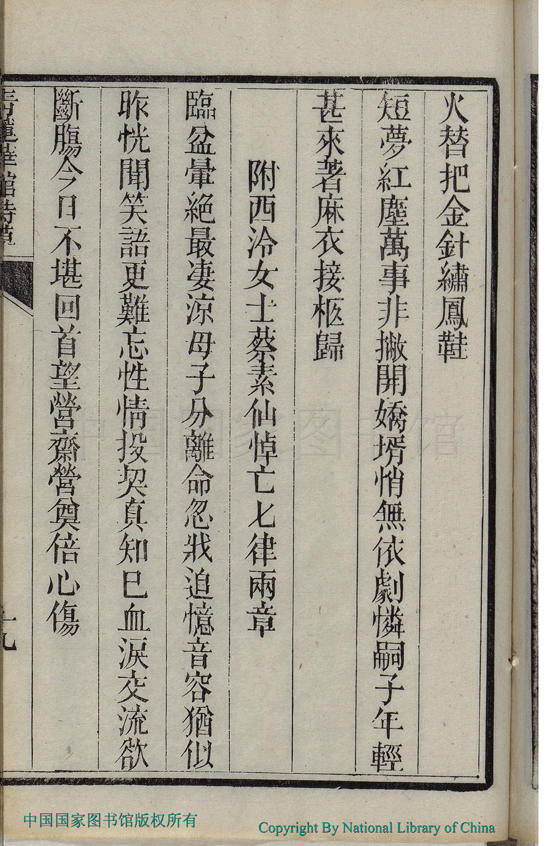 火替把金針繡鳳鞋
短夢紅塵萬事非撇開嬌壻悄無依劇憐嗣子年輕
甚來著麻衣接柩歸
附西泠女士蔡素仙悼亡七律兩章
臨盆暈絕最凄涼母子分離命忽戕追憶音容猶似
昨恍聞笑語更難忘性情投契真知己血淚交流欲
斷腸今日不堪回首望營齋營奠倍心傷
中国国家图书馆
中国国家图书馆版权所有
Copyright By National Library of China